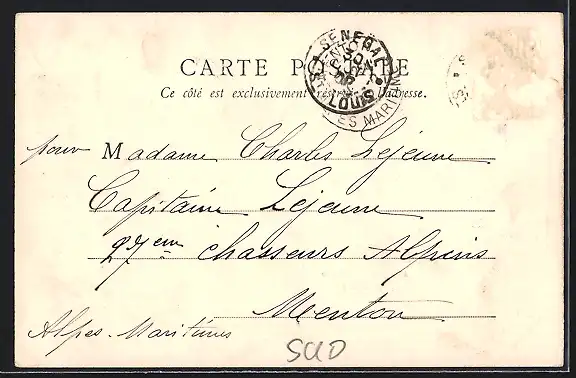 CARTE POSTALE
Ce côté est exclusivement réservé à l'adresse.
SENEGAL
LOUIS
MENTON
ALPES MARITIMES
pour Madame Charles Lejeune
Capitaine Lejeune
27eme chasseurs Alpins
Menton
Alpes-Maritimes
SUD